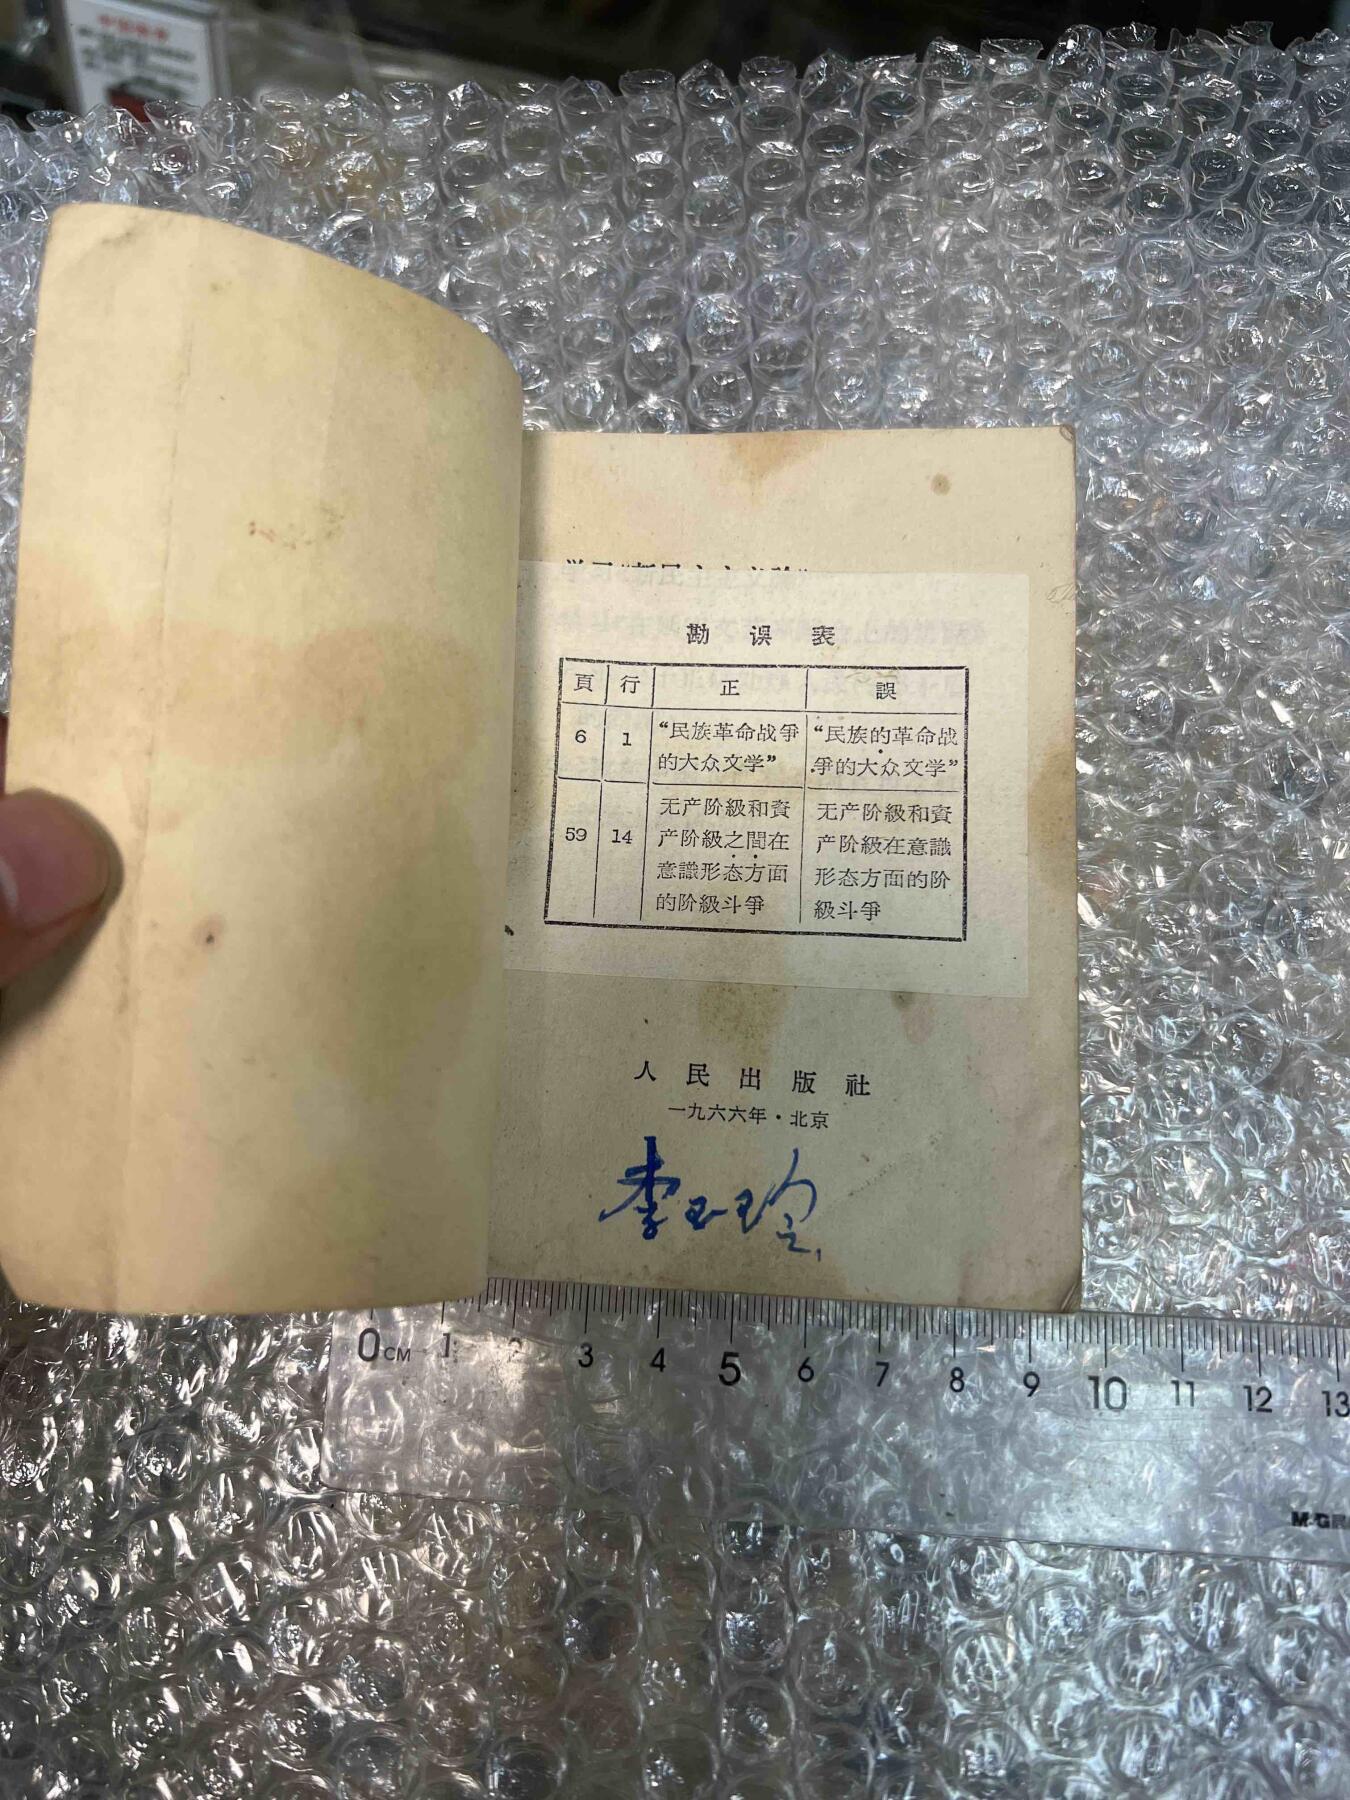 勘误表
頁 行 正 誤
6 1 “民族革命战爭 “民族的革命战
的大众文学” 爭的大众文学”
59 14 无产阶級和資 无产阶級和資
产阶級之間在 产阶級在意識
意識形态方面 形态方面的阶
的阶級斗爭 級斗爭
人民出版社
一九六六年·北京
李玉玲
0CM 1 2 3 4 5 6 7 8 9 10 11 12 13